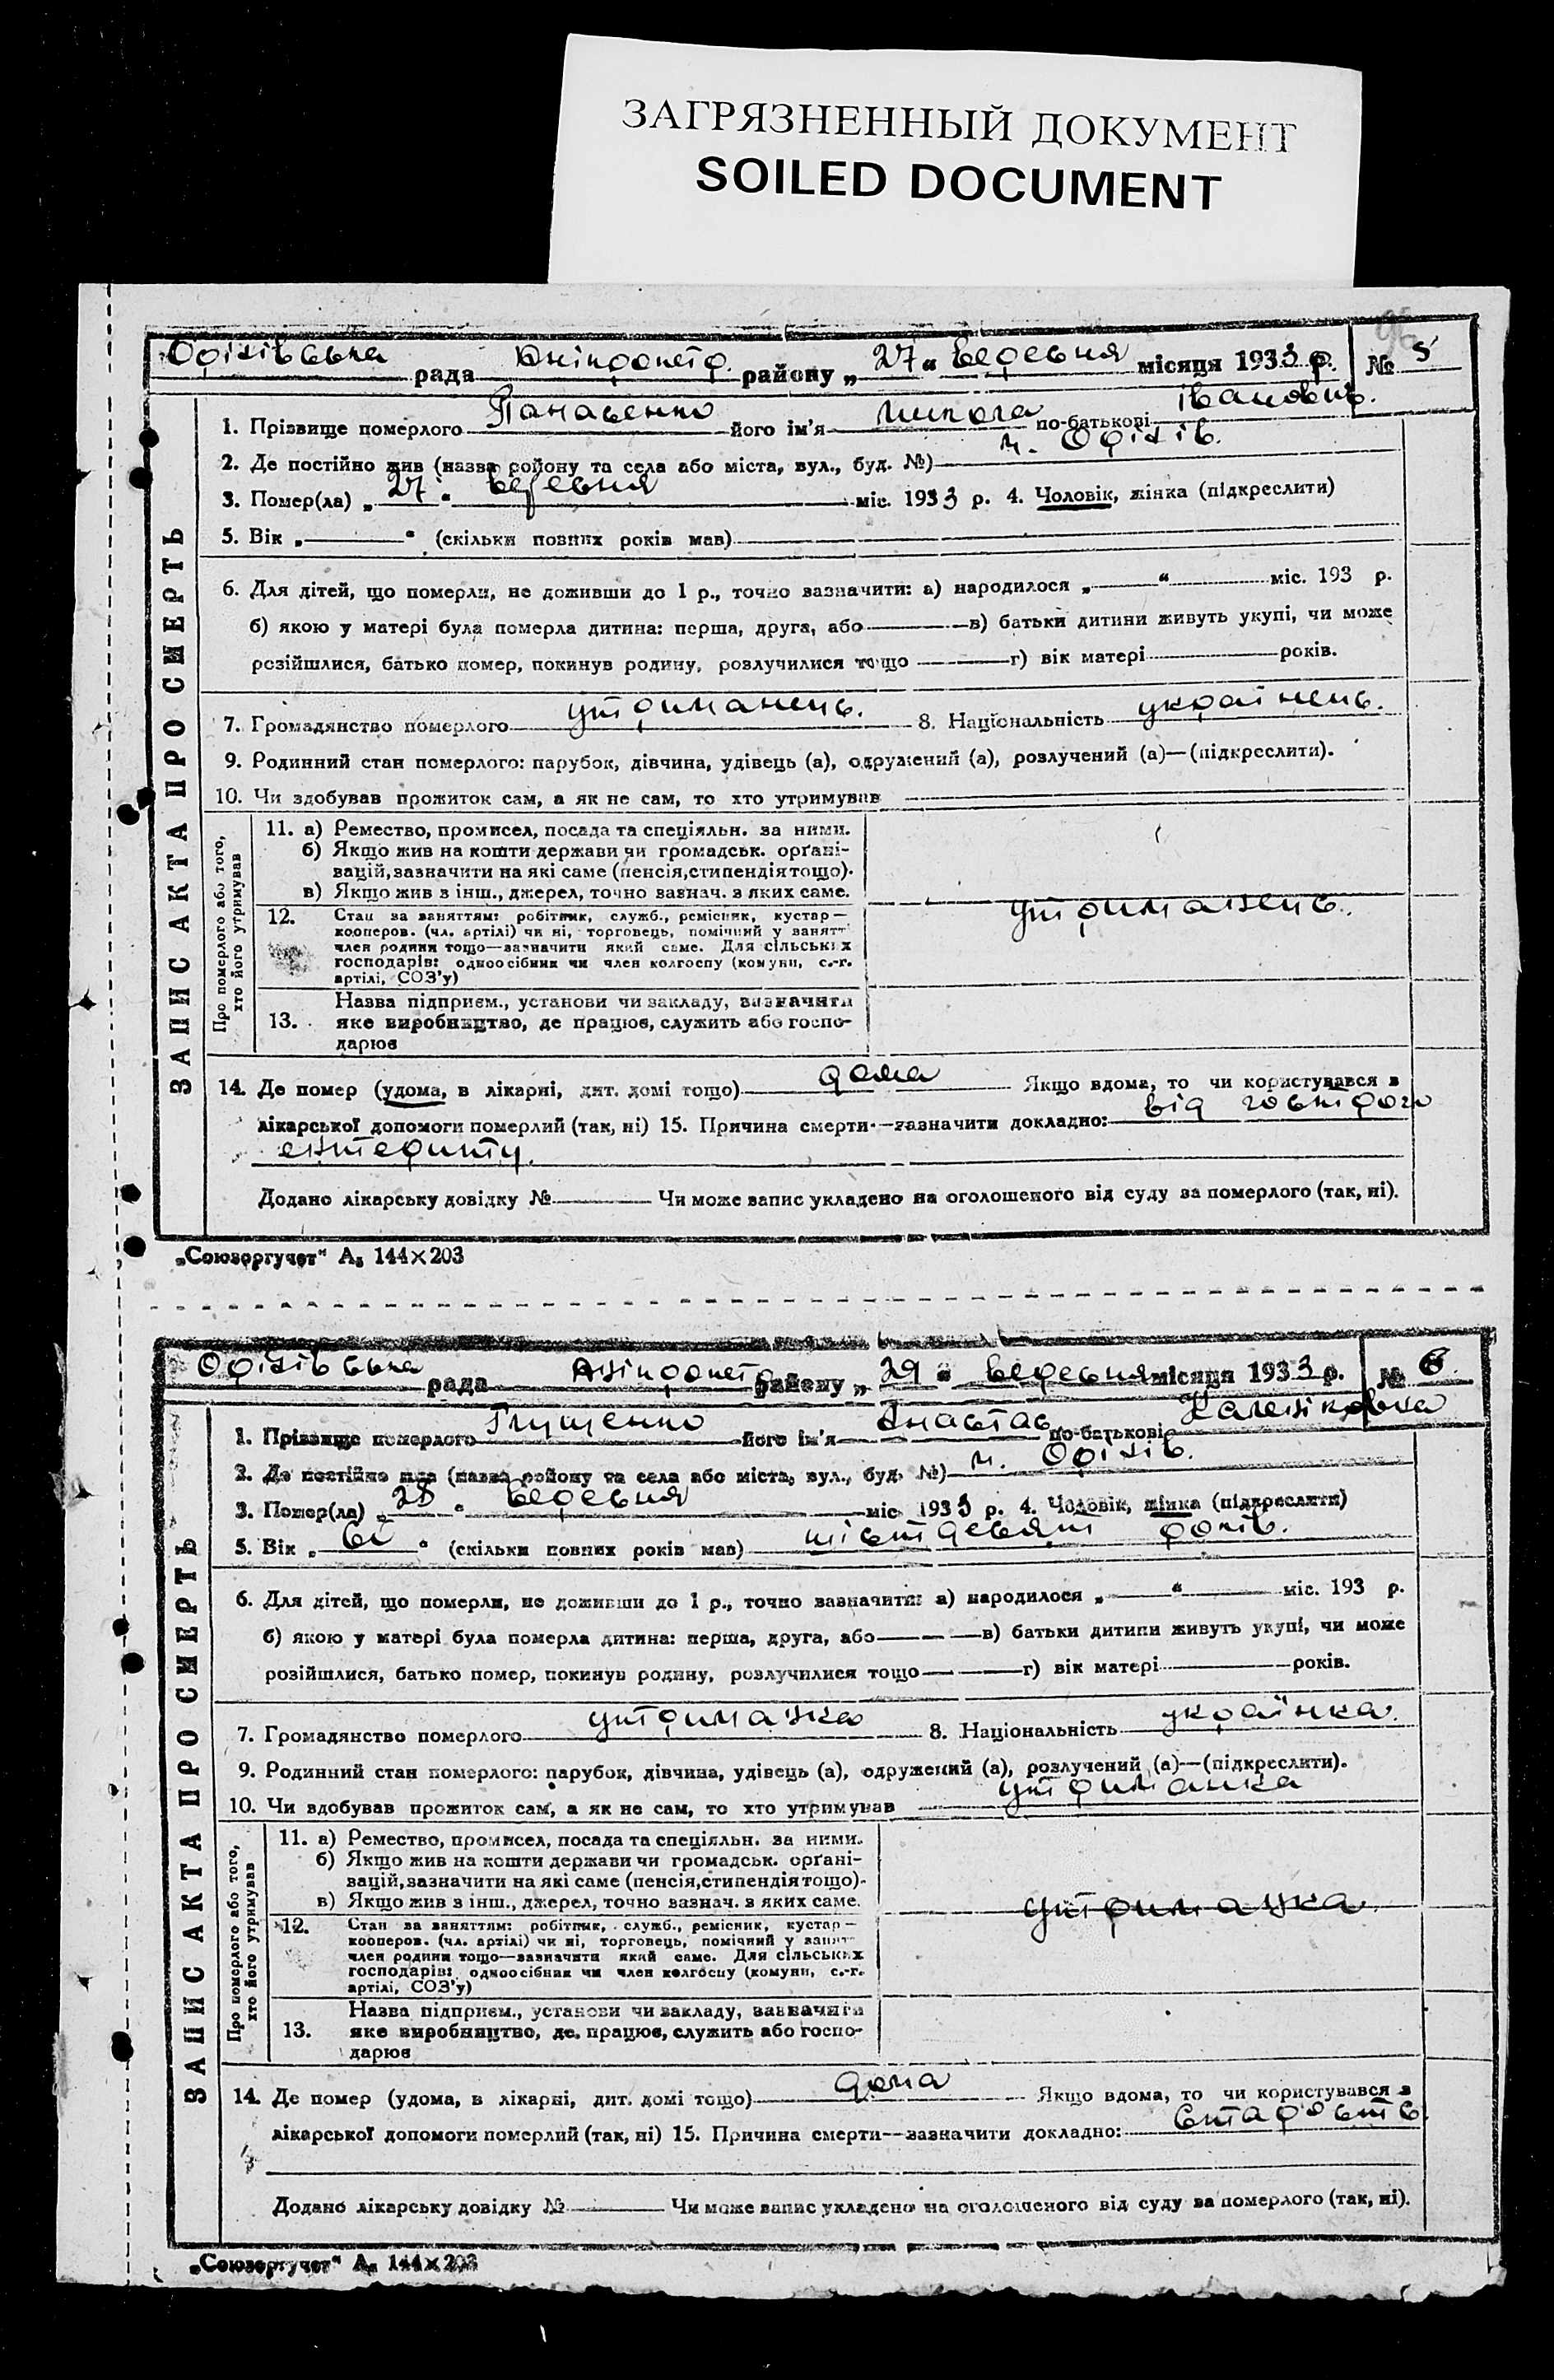 ЗАГРЯЗНЕННЫЙ ДОКУМЕНТ
SOILED DOCUMENT
рада Дніпропетр. району „ 27 “ вересня місяця 1933 р. № 5
ЗАПИС АКТА ПРО СМЕРТЬ
1. Прізвище померлого Панасенко його ім'я Микола по-батькові Іванович.
2. Де постійно жив (назва району та села або міста, вул., буд. №)
3. Помер(ла) „ 27 “ вересня міс. 1933 р. 4. Чоловік, жінка (підкреслити)
5. Вік „ “ (скільки повних років мав)
6. Для дітей, що померли, не доживши до 1 р., точно зазначити: а) народилося „ “ міс. 193 р.
б) якою у матері була померла дитина: перша, друга, або в) батьки дитини живуть укупі, чи може
розійшлися, батько помер, покинув родину, розлучилися тощо г) вік матері років.
7. Громадянство померлого утриманець. 8. Національність українець.
9. Родинний стан померлого: парубок, дівчина, удівець (а), одружений (а), розлучений (а)—(підкреслити).
10. Чи здобував прожиток сам, а як не сам, то хто утримував
Про померлого або того,
хто його утримував
11. а) Ремество, промисел, посада та спеціяльн. за ними.
б) Якщо жив на кошти держави чи громадськ. орґані-
зацій, зазначити на які саме (пенсія, стипендія тощо).
в) Якщо жив з інш., джерел, точно зазнач. з яких саме.
утриманець.
12. Стан за заняттям: робітник, служб., ремісник, кустар—
кооперов. (чл. артілі) чи ні, торговець, помічний у занятт
член родини тощо—зазначити який саме. Для сільських
господарів: одноосібник чи член колгоспу (комуни, с.-г.
артілі, СОЗ'у)
13. Назва підприєм., установи чи закладу, зазначити
яке виробництво, де працює, служить або госпо-
дарює
14. Де помер (удома, в лікарні, дит. домі тощо) дома Якщо вдома, то чи користувався з
лікарської допомоги померлий (так, ні) 15. Причина смерти—зазначити докладно: від
ентериту.
Додано лікарську довідку № Чи може запис укладено на оголошеного від суду за померлого (так, ні).
„Союзоргучет“ А₅ 144×203
рада Дніпропетр району „ 29 “ вересня місяця 1933 р. № 6.
ЗАПИС АКТА ПРО СМЕРТЬ
1. Прізвище померлого Глущенко його ім'я по-батькові
2. Де постійно жив (назва району та села або міста, вул., буд. №)
3. Помер(ла) „ 28 “ вересня міс 1933 р. 4. Чоловік, жінка (підкреслити)
5. Вік „ “ (скільки повних років мав) років.
6. Для дітей, що померли, не доживши до 1 р., точно зазначити: а) народилося „ “ міс. 193 р.
б) якою у матері була померла дитина: перша, друга, або в) батьки дитини живуть укупі, чи може
розійшлися, батько помер, покинув родину, розлучилися тощо г) вік матері років.
7. Громадянство померлого утриманка 8. Національність українка.
9. Родинний стан померлого: парубок, дівчина, удівець (а), одружений (а), розлучений (а)—(підкреслити).
10. Чи здобував прожиток сам, а як не сам, то хто утримував утриманка
Про померлого або того,
хто його утримував
11. а) Ремество, промисел, посада та спеціяльн. за ними.
б) Якщо жив на кошти держави чи громадськ. орґані-
зацій, зазначити на які саме (пенсія, стипендія тощо).
в) Якщо жив з інш., джерел, точно зазнач. з яких саме.
утриманка
12. Стан за заняттям: робітник, служб., ремісник, кустар—
кооперов. (чл. артілі) чи ні, торговець, помічний у занятт
член родини тощо—зазначити який саме. Для сільських
господарів: одноосібник чи член колгоспу (комуни, с.-г.
артілі, СОЗ'у)
13. Назва підприєм., установи чи закладу, зазначити
яке виробництво, де, працює, служить або госпо-
дарює
14. Де помер (удома, в лікарні, дит. домі тощо) дома Якщо вдома, то чи користувався з
лікарської допомоги померлий (так, ні) 15. Причина смерти—зазначити докладно: старость.
Додано лікарську довідку № Чи може запис укладено на оголошеного від суду за померлого (так, ні).
„Союзоргучет“ А₅ 144×203